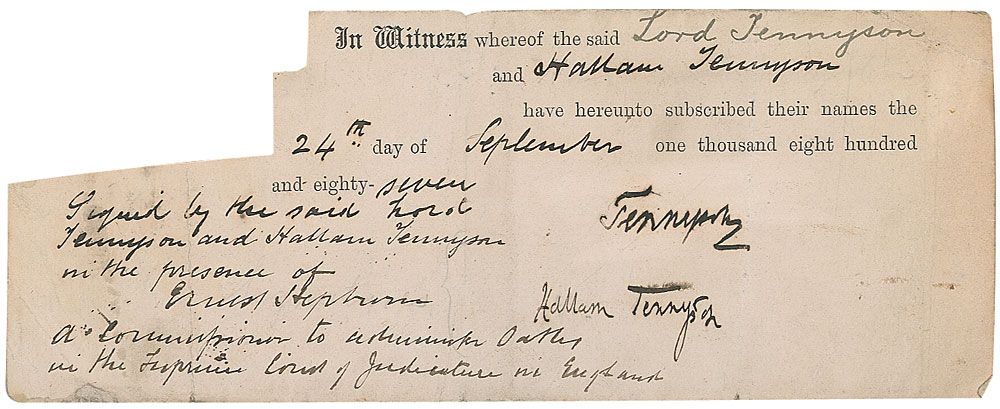 In Witness whereof the said Lord Tennyson
and Hallam Tennyson
have hereunto subscribed their names the
24th day of September one thousand eight hundred
and eighty-seven
Signed by the said Lord
Tennyson and Hallam Tennyson
in the presence of
Ernest Hepburn
a Commissioner to administer Oaths
in the Supreme Court of Judicature in England
Tennyson
Hallam Tennyson